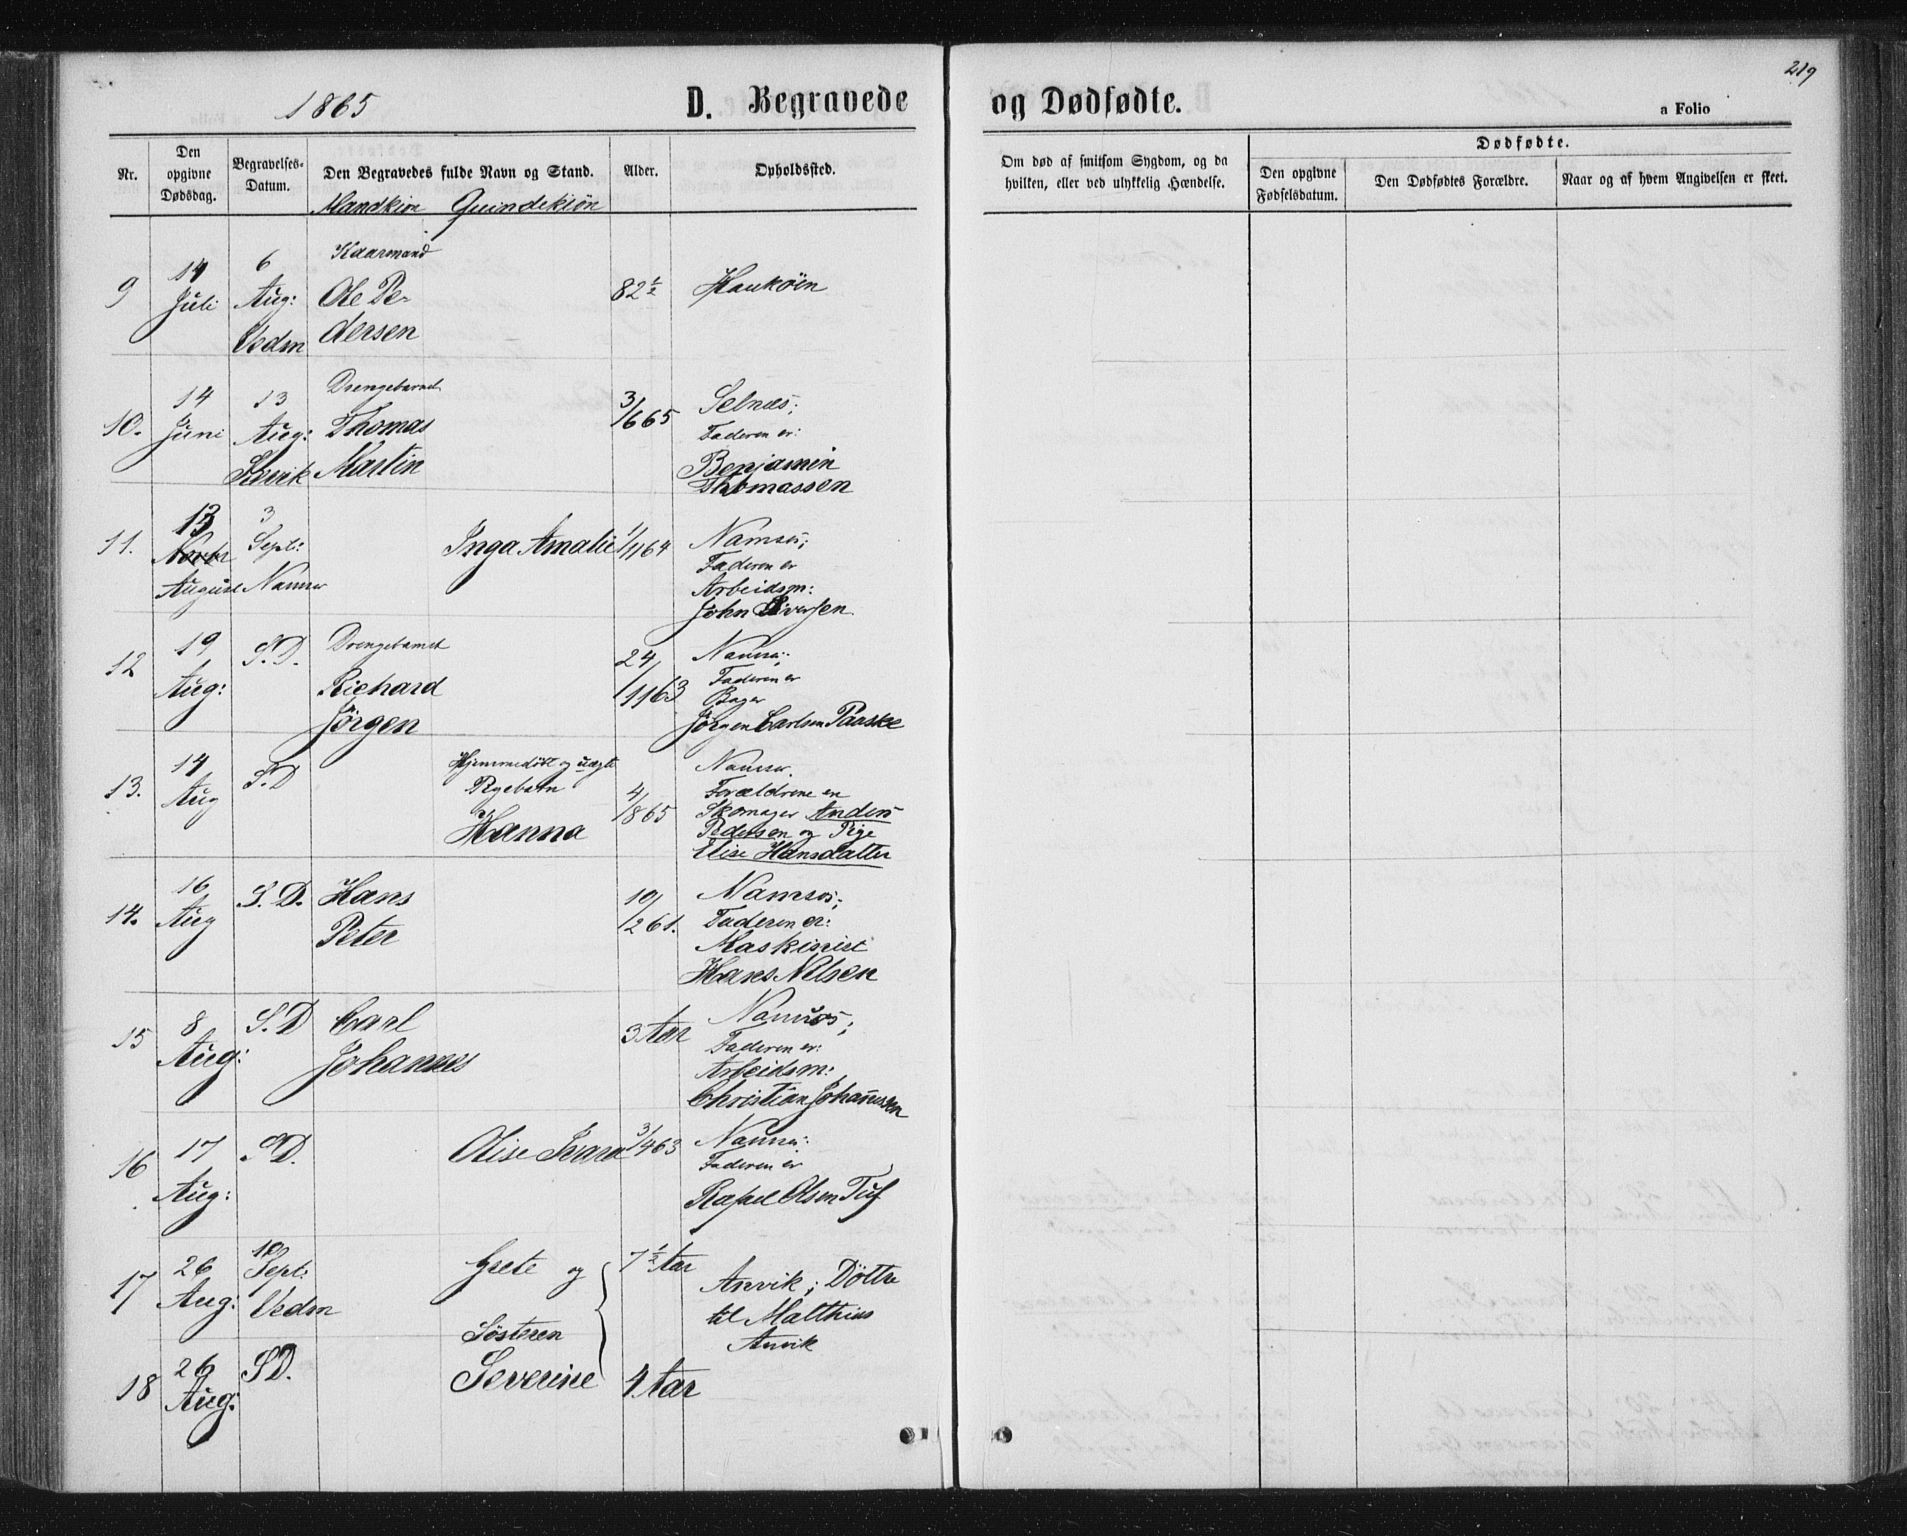 219
1865
D. Begravede og Dødfødte.
a Folio
Nr.
Den opgivne Dødsdag.
Begravelses-Datum.
Den Begravedes fulde Navn og Stand.
Mandkiøn Quindekiøn
Alder.
Opholdssted.
Om død af smitsom Sygdom, og da hvilken, eller ved ulykkelig Hændelse.
Dødfødte.
Den opgivne Fødselsdatum.
Den Dødfødtes Forældre.
Naar og af hvem Angivelsen er skeet.
9 14 Juli 6 Aug: Vedm
Kaarmand
Ole Pe-
dersen
82½ Haukøen
10. 14 Juni 13 Aug:
Drengebarnet
Thomas
Martin
3/665
Selnæs;
Faderen er:
Benjamin
Thomassen
11. 13 August 3 Sept: Namsos
Inga Amalie 1/1164
Namsos;
Faderen er
Arbeidsm:
John Siversen
12 19 Aug: S.D.
Drengebarnet
Richard
Jørgen
24/1163
Namsos;
Faderen er
Bager
Jørgen Carlsen Paaske
13. 14 Aug S.D
Hjemmedøbt og uægte
Pigebarn
Hanna
4/865
Namsos.
Forældrene er
Skomager Anders
Pedersen og Pige
Elise Hansdatter
14. 16 Aug S.D.
Hans
Peter
10/261.
Namsos;
Faderen er:
Maskinist
Hans Nilsen
15 8 Aug: S.D
Carl
Johannes
3 Aar
Namsos;
Faderen er:
Arbeidsm:
Christian Johannssen
16 17 Aug: S.D.
Olise 3/463
Namsos:
Faderen er
Rafael Olsen Tuf
17 26 Aug: 10 Sept: Vedm
Grete og
7½ Aar
Anvik; Døttre
til Matthias
Anvik
Søsteren
18 26 Aug: S.D.
Severine 4 Aar